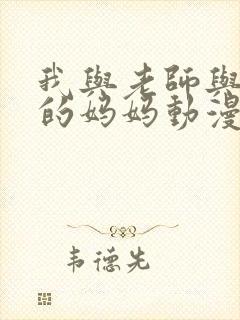 我與老師與
的媽媽動漫
韦德先